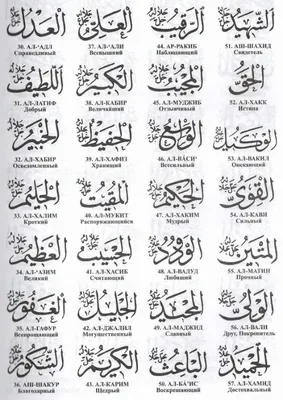 العدل العلي الرقيب الشهيد
30. АЛ-‘АДЛ 37. АЛ-‘АЛИ 44. АР-РАКИБ 51. АШ-ШАХИД
Справедливый Всевышний Наблюдающий Свидетель
اللطيف الكبير المجيب الحق
31. АЛ-ЛАТИФ 38. АЛ-КАБИР 45. АЛ-МУДЖИБ 52. АЛ-ХАКК
Добрый Величайший Отзывчивый Истина
الخبير الحفيظ الواسع الوكيل
32. АЛ-ХАБИР 39. АЛ-ХАФИЗ 46. АЛ-ВАСИ‘ 53. АЛ-ВАКИЛ
Осведомленный Хранящий Всесильный Опекающий
الحليم المقيت الحكيم القوي
33. АЛ-ХАЛИМ 40. АЛ-МУКИТ 47. АЛ-ХАКИМ 54. АЛ-КАВИ
Кроткий Распоряжающийся Мудрый Сильный
العظيم الحسيب الودود المتين
34. АЛ-‘АЗИМ 41. АЛ-ХАСИБ 48. АЛ-ВАДУД 55. АЛ-МАТИН
Великий Считающий Любящий Прочный
الغفور الجليل المجيد الولي
35. АЛ-ГАФУР 42. АЛ-ДЖАЛИЛ 49. АЛ-МАДЖИД 56. АЛ-ВАЛИ
Всепрощающий Могущественный Славный Друг, Покровитель
الشكور الكريم الباعث الحميد
36. АШ-ШАКУР 43. АЛ-КАРИМ 50. АЛ-БА‘ИС 57. АЛ-ХАМИД
Благодарный Щедрый Воскрешающий Достохвальный